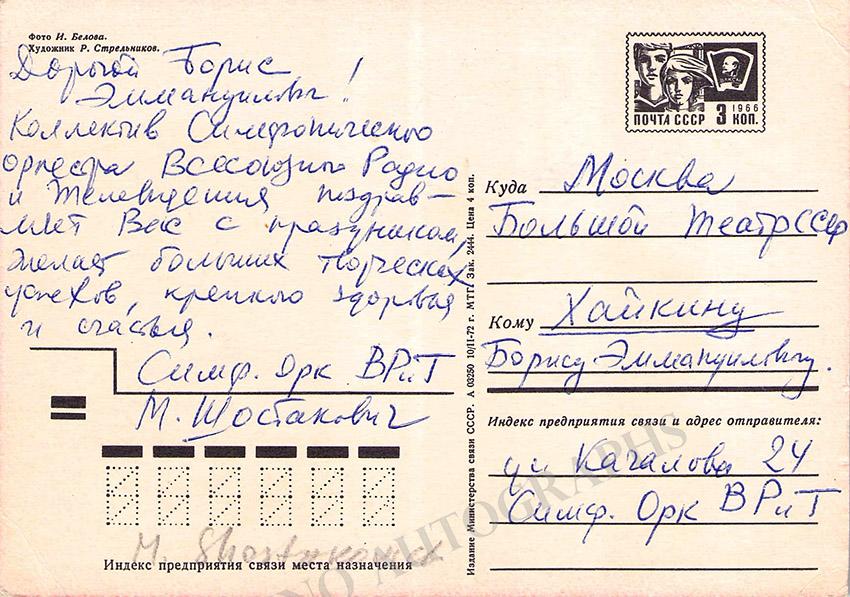 Фото И. Белова.
Художник Р. Стрельников.
Дорогой Борис
Эммануилович!
Коллектив Симфонического
оркестра Всесоюзного Радио
и Телевидения поздрав-
ляет Вас с праздником,
желает больших творческих
успехов, крепкого здоровья
и счастья.
Симф. Орк ВРиТ
М. Шостакович
M. Shostakovich
Индекс предприятия связи места назначения
Издание Министерства связи СССР. А 03250 10/II-72 г. МТГ. Зак. 2444. Цена 4 коп.
ПОЧТА СССР 3 1966 КОП.
Куда Москва
Большой Театр СССР
Кому Хайкину
Борису Эммануиловичу.
Индекс предприятия связи и адрес отправителя:
ул Качалова 24
Симф. Орк ВРиТ
NO AUTOGRAPHS